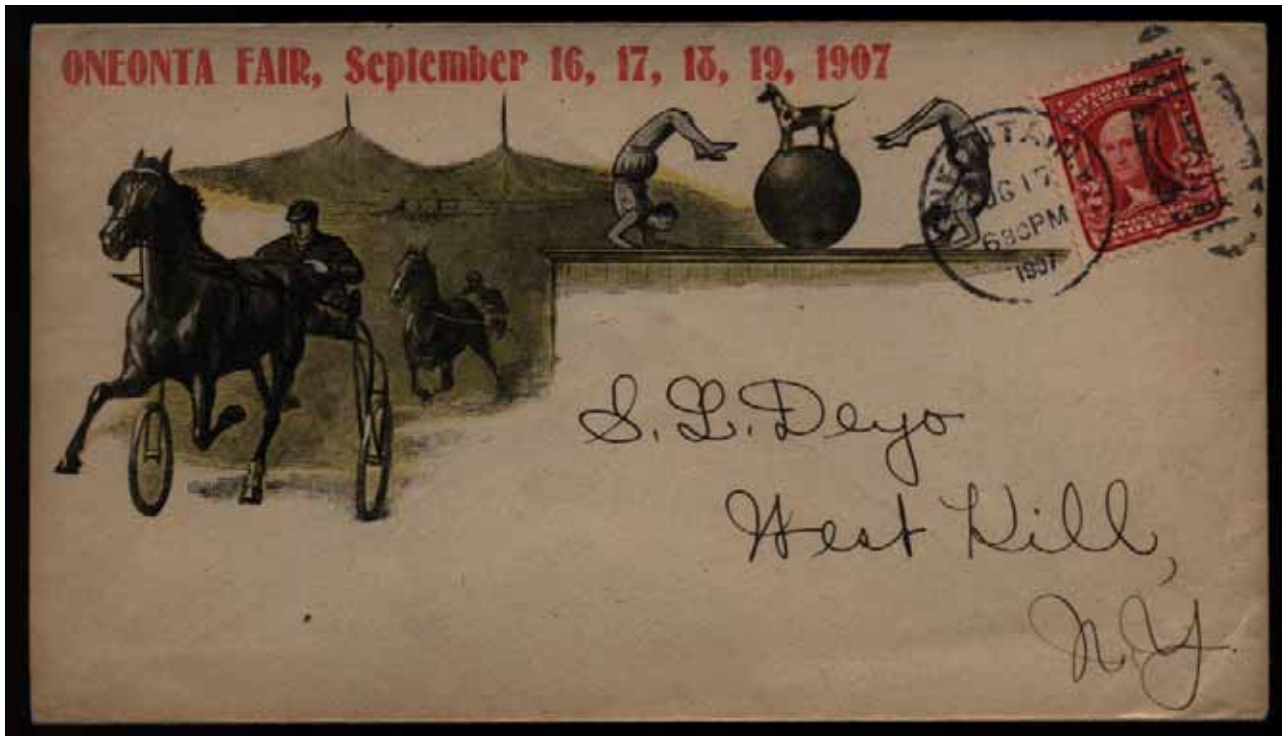 ONEONTA FAIR, September 16, 17, 18, 19, 1907
17
630PM
1907
2 2
S. L. Deyo
West Kill,
N.Y.